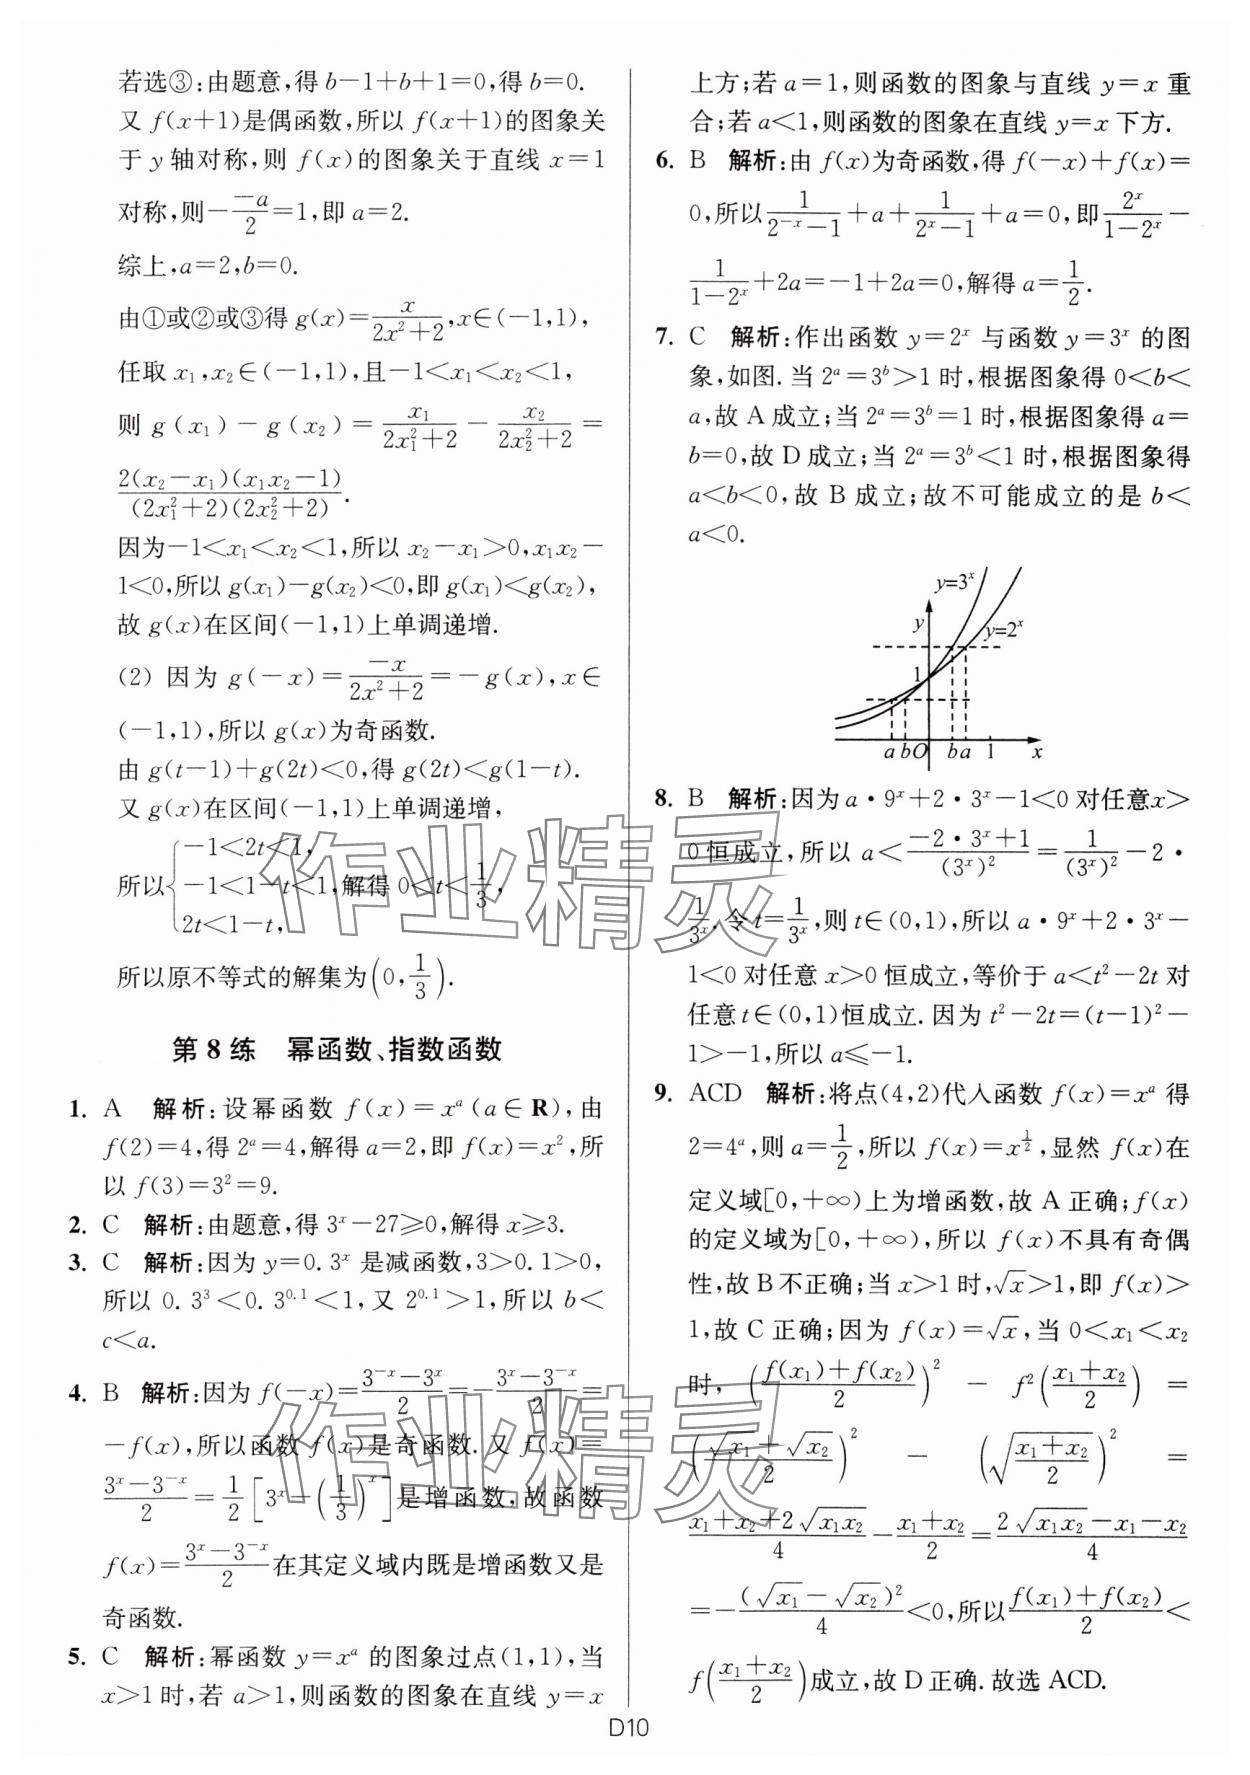 若选③:由题意,得 b−1+b+1=0,得 b=0.
又 f(x+1)是偶函数,所以 f(x+1)的图象关
于 y 轴对称,则 f(x)的图象关于直线 x=1
对称,则−\frac{−a}{2}=1,即 a=2.
综上,a=2,b=0.
由①或②或③得 g(x)=\frac{x}{2x²+2},x∈(−1,1),
任取 x₁,x₂∈(−1,1),且−1<x₁<x₂<1,
则 g(x₁)−g(x₂)=\frac{x₁}{2x₁²+2}−\frac{x₂}{2x₂²+2}=
\frac{2(x₂−x₁)(x₁x₂−1)}{(2x₁²+2)(2x₂²+2)}.
因为−1<x₁<x₂<1,所以 x₂−x₁>0,x₁x₂−
1<0,所以 g(x₁)−g(x₂)<0,即 g(x₁)<g(x₂),
故 g(x)在区间(−1,1)上单调递增.
(2) 因为 g(−x)=\frac{−x}{2x²+2}=−g(x),x∈
(−1,1),所以 g(x)为奇函数.
由 g(t−1)+g(2t)<0,得 g(2t)<g(1−t).
又 g(x)在区间(−1,1)上单调递增,
−1<2t<1,
所以{−1<1−t<1,解得 0<t<\frac{1}{3},
2t<1−t,
所以原不等式的解集为(0,\frac{1}{3}).
第 8 练 幂函数、指数函数
1. A 解析:设幂函数 f(x)=xᵃ(a∈R),由
f(2)=4,得 2ᵃ=4,解得 a=2,即 f(x)=x²,所
以 f(3)=3²=9.
2. C 解析:由题意,得 3ˣ−27≥0,解得 x≥3.
3. C 解析:因为 y=0.3ˣ 是减函数,3>0.1>0,
所以 0.3³<0.3^{0.1}<1,又 2^{0.1}>1,所以 b<
c<a.
4. B 解析:因为 f(−x)=\frac{3^{−x}−3^{x}}{2}=−\frac{3^{x}−3^{−x}}{2}=
−f(x),所以函数 f(x)是奇函数.又 f(x)=
\frac{3^{x}−3^{−x}}{2}=\frac{1}{2}[3ˣ−(\frac{1}{3})ˣ]是增函数,故函数
f(x)=\frac{3^{x}−3^{−x}}{2}在其定义域内既是增函数又是
奇函数.
5. C 解析:幂函数 y=xᵃ 的图象过点(1,1),当
x>1 时,若 a>1,则函数的图象在直线 y=x
上方;若 a=1,则函数的图象与直线 y=x 重
合;若 a<1,则函数的图象在直线 y=x 下方.
6. B 解析:由 f(x)为奇函数,得 f(−x)+f(x)=
0,所以\frac{1}{2^{−x}−1}+a+\frac{1}{2^{x}−1}+a=0,即\frac{2^{x}}{1−2^{x}}−
\frac{1}{1−2^{x}}+2a=−1+2a=0,解得 a=\frac{1}{2}.
7. C 解析:作出函数 y=2ˣ 与函数 y=3ˣ 的图
象,如图.当 2ᵃ=3ᵇ>1 时,根据图象得 0<b<
a,故 A 成立;当 2ᵃ=3ᵇ=1 时,根据图象得 a=
b=0,故 D 成立;当 2ᵃ=3ᵇ<1 时,根据图象得
a<b<0,故 B 成立;故不可能成立的是 b<
a<0.
y=3ˣ
y
y=2ˣ
1
a b O b a 1 x
8. B 解析:因为 a·9ˣ+2·3ˣ−1<0 对任意x>
0 恒成立,所以 a<\frac{−2·3^{x}+1}{(3^{x})²}=\frac{1}{(3^{x})²}−2·
\frac{1}{3^{x}},令 t=\frac{1}{3^{x}},则 t∈(0,1),所以 a·9ˣ+2·3ˣ−
1<0 对任意 x>0 恒成立,等价于 a<t²−2t 对
任意 t∈(0,1)恒成立.因为 t²−2t=(t−1)²−
1>−1,所以 a≤−1.
9. ACD 解析:将点(4,2)代入函数 f(x)=xᵃ 得
2=4ᵃ,则 a=\frac{1}{2},所以 f(x)=x^{\frac{1}{2}},显然 f(x)在
定义域[0,+∞)上为增函数,故 A 正确;f(x)
的定义域为[0,+∞),所以 f(x)不具有奇偶
性,故 B 不正确;当 x>1 时,√x>1,即 f(x)>
1,故 C 正确;因为 f(x)=√x,当 0<x₁<x₂
时,(\frac{f(x₁)+f(x₂)}{2})²−f²(\frac{x₁+x₂}{2})=
(\frac{√x₁+√x₂}{2})²−(√{\frac{x₁+x₂}{2}})²=
\frac{x₁+x₂+2√{x₁x₂}}{4}−\frac{x₁+x₂}{2}=\frac{2√{x₁x₂}−x₁−x₂}{4}
=−\frac{(√x₁−√x₂)²}{4}<0,所以\frac{f(x₁)+f(x₂)}{2}<
f(\frac{x₁+x₂}{2})成立,故 D 正确.故选 ACD.
D10
作业精灵
作业精灵